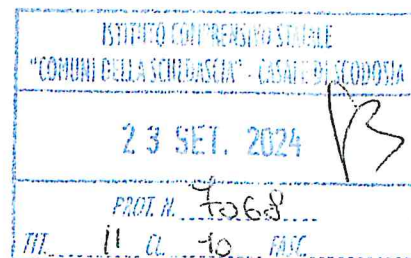 ISTITUTO COMPRENSIVO STATALE
"COMUNI DELLA SCULDASCIA" - CASALE DI SCODOSIA
23 SET. 2024
PROT. N. 7068
TIT. II CL. 10 FASC.